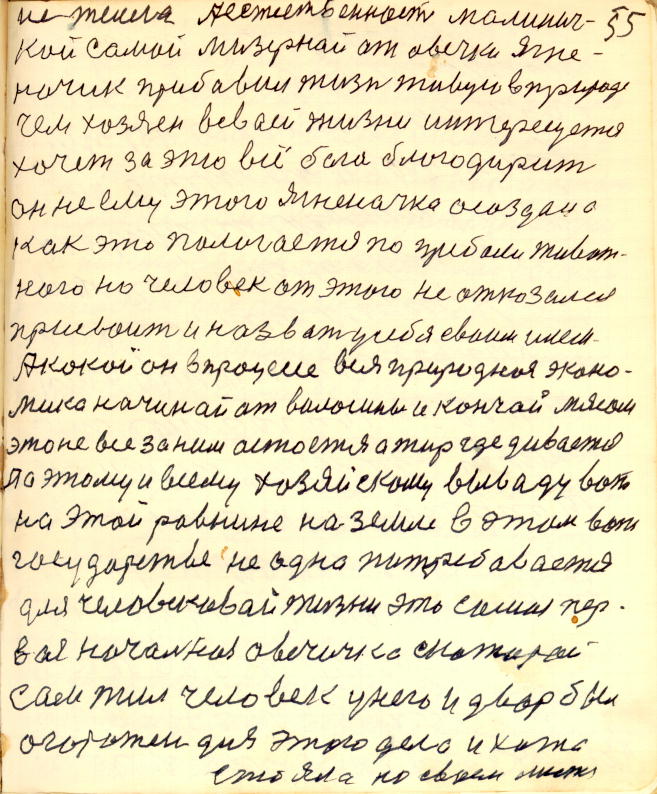 не телега А естественност малинич- 55
кой самой мизернай от овечки ягне-
ночик прибавил жизн живую в природе
чем хозяен всваей жизни интересуется
хочет за это всё бога благодарит
он не ему этого ягненачка осоздано
как это пологается по прибали живот-
ного но человек от этого не отказался
присвоит и назват у себя своим имем
А какой он в процесе вся природная эконо-
мика начинай от валосины и кончай мясом
это не все за ним остоется а жир где дивается
Па этому и всему хозяйскому вываду вот
на этой равнине на земле в этом вот
государстве не одна потребавается
для человековай жизни это самая пер-
вая началная овечичка скоторай
сам жил человек у него и двор был
огорожен для этого дела и хата
стояла на своем мести